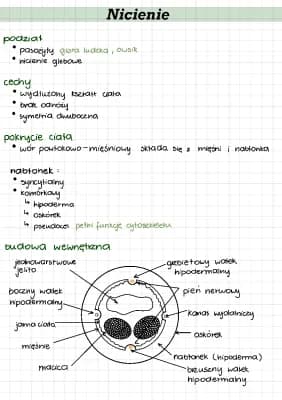 Nicienie
podział
• pasożyty glista ludzka, owsik
• nicienie glebowe
cechy
• wydłużony kształt ciała
• brak odnóży
• symetria dwuboczna
pokrycie ciała
• wór powłokowo-mięśniowy składa się z mięśni i nabłonka
nabłonek:
• syncytialny
• komórkowy
↳ hipoderma
↳ oskórek
↳ pseudocel pełni funkcję cytoszkieletu
budowa wewnętrzna
jednowarstwowe
jelito
boczny wałek
hipodermalny
jama ciała
mięśnie
macica
grzbietowy wałek
hipodermalny
pień nerwowy
kanał wydalniczy
oskórek
nabłonek (hipoderma)
brzuszny wałek
hipodermalny